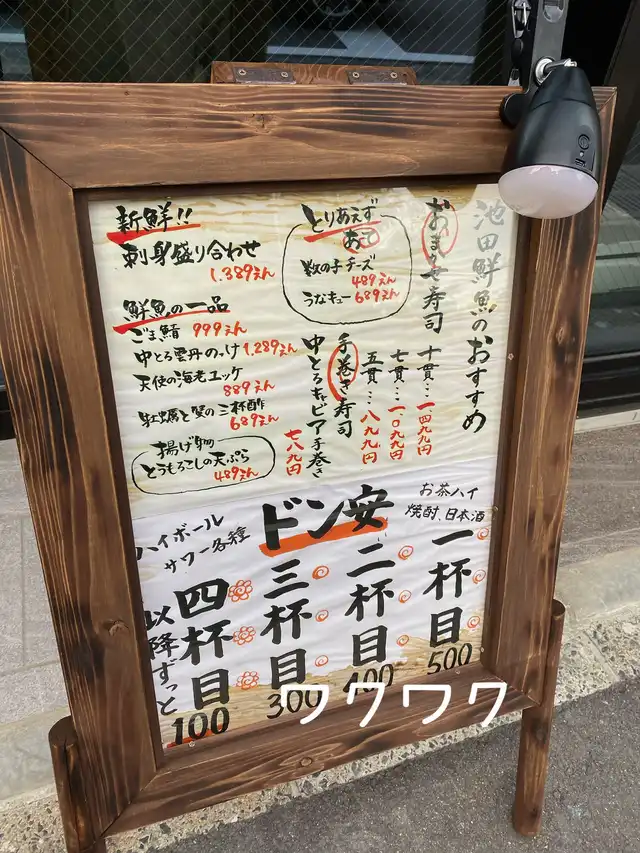 池田鮮魚のおすすめ
おまかせ寿司
十貫…一、四九九円
七貫…一、〇九九円
五貫…八九九円
手巻き寿司
中とろキャビア手巻き
七八九円
とりあえず
あて
数の子チーズ
489えん
うなキュー 689えん
新鮮!!
刺身盛り合わせ
1.389えん
鮮魚の一品
ごま鯖 999えん
中とろ雲丹のっけ 1.289えん
天使の海老ユッケ
889えん
牡蠣と蟹の三杯酢
689えん
揚げ物
とうもろこしの天ぷら
489えん
ドン安
お茶ハイ
焼酎、日本酒
ハイボール
サワー各種
一杯目
500
二杯目
400
三杯目
300
四杯目
以降ずっと
100
ワクワク